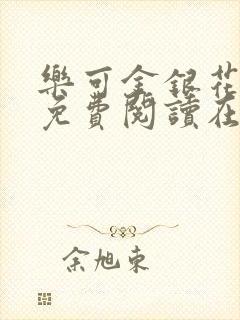 樂可金銀花
免費閱讀在
余旭東